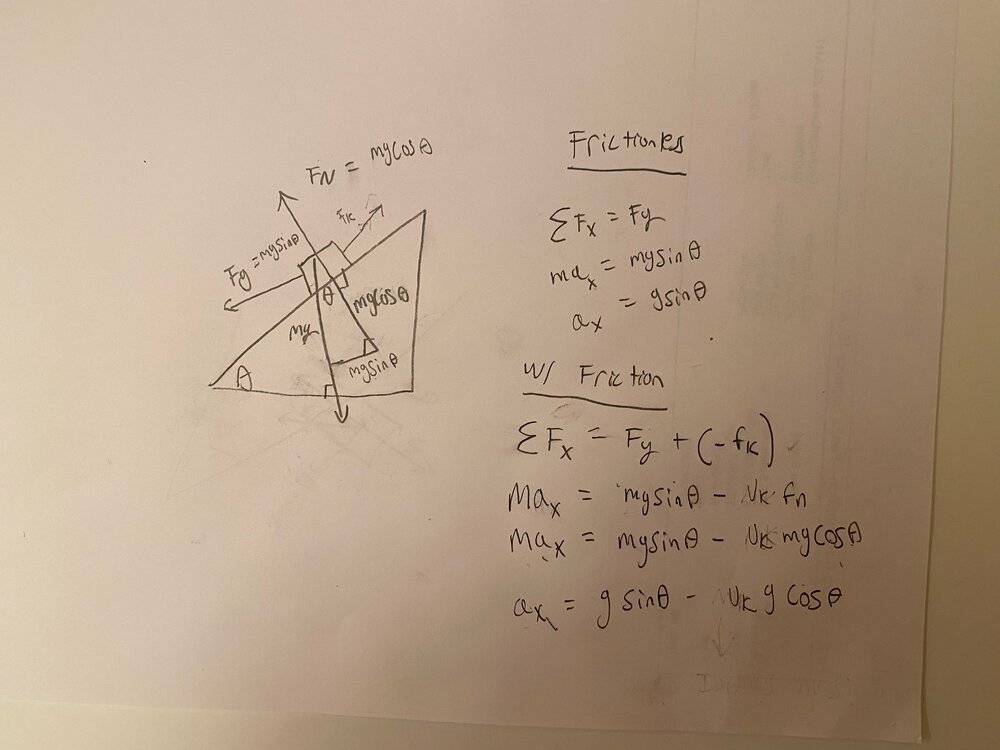 FN = mgcosθ
fk
Fg = mgsinθ
θ
mgcosθ
mg
mgsinθ
θ
Frictionless
ΣFx = Fg
max = mgsinθ
ax = gsinθ
w/ Friction
ΣFx = Fg + (-fk)
Max = mgsinθ - Uk fn
Max = mgsinθ - Uk mgcosθ
ax = g sinθ - Uk g cosθ